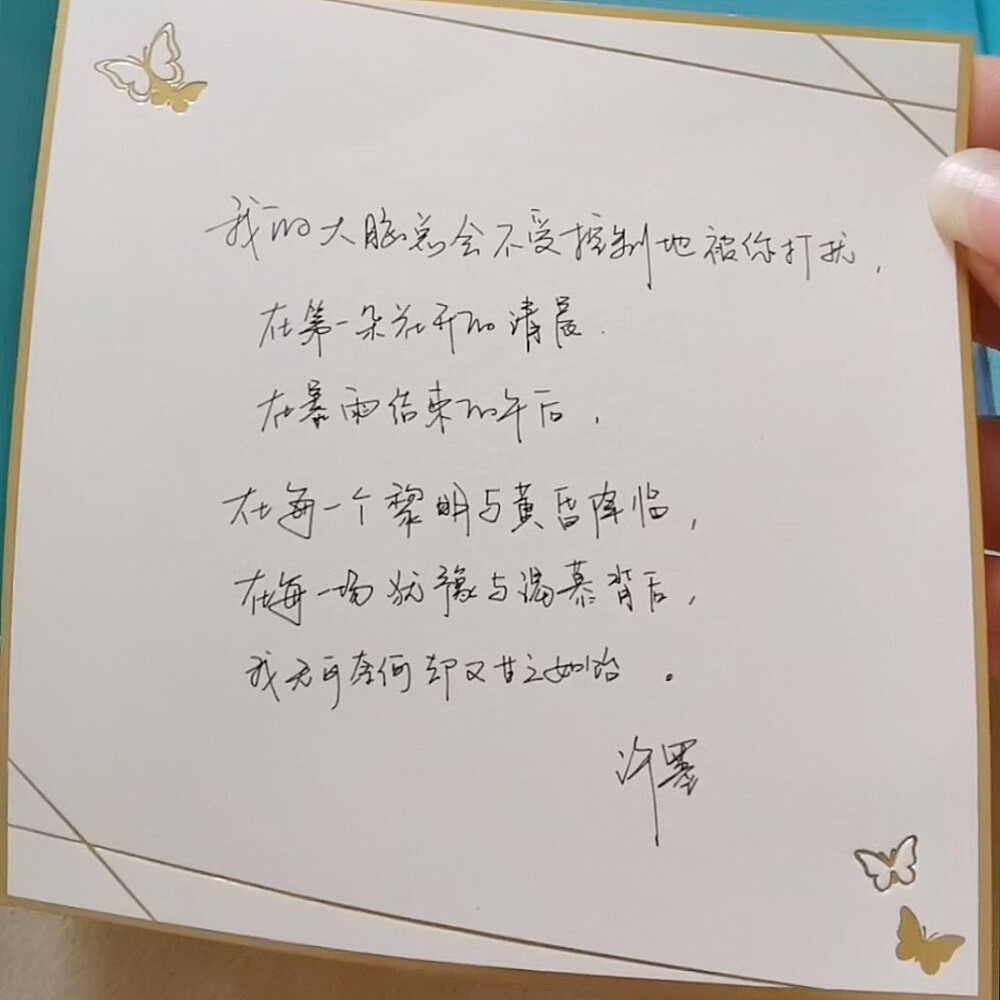 我的大脑总会不受控制地被你打扰，
在第一朵花开的清晨.
在暴雨结束的午后，
在每一个黎明与黄昏降临，
在每一场犹豫与渴慕背后，
我无可奈何却又甘之如饴。
许墨